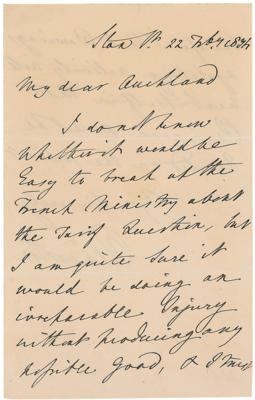 Stan St. 22 Feby 1834
My dear Auckland
I do not know
whether it would be
Easy to break up the
French Ministry about
the Tarif Question, but
I am quite sure it
would be doing an
irreparable Injury
without producing any
possible Good, & I must